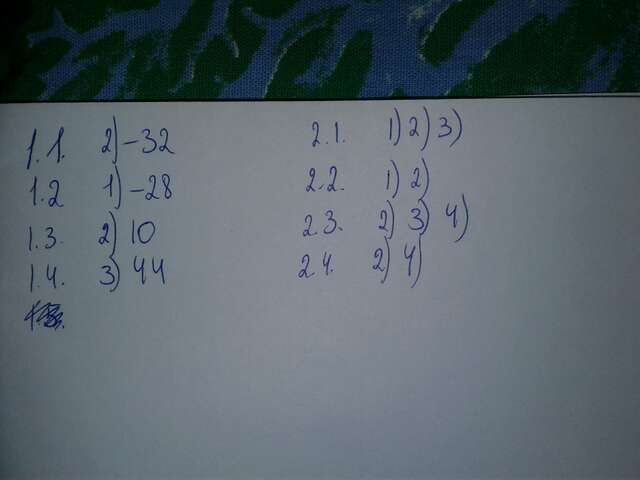 1.1. 2) -32
1.2 1) -28
1.3. 2) 10
1.4. 3) 44
2.1. 1) 2) 3)
2.2. 1) 2)
2.3. 2) 3) 4)
2.4. 2) 4)